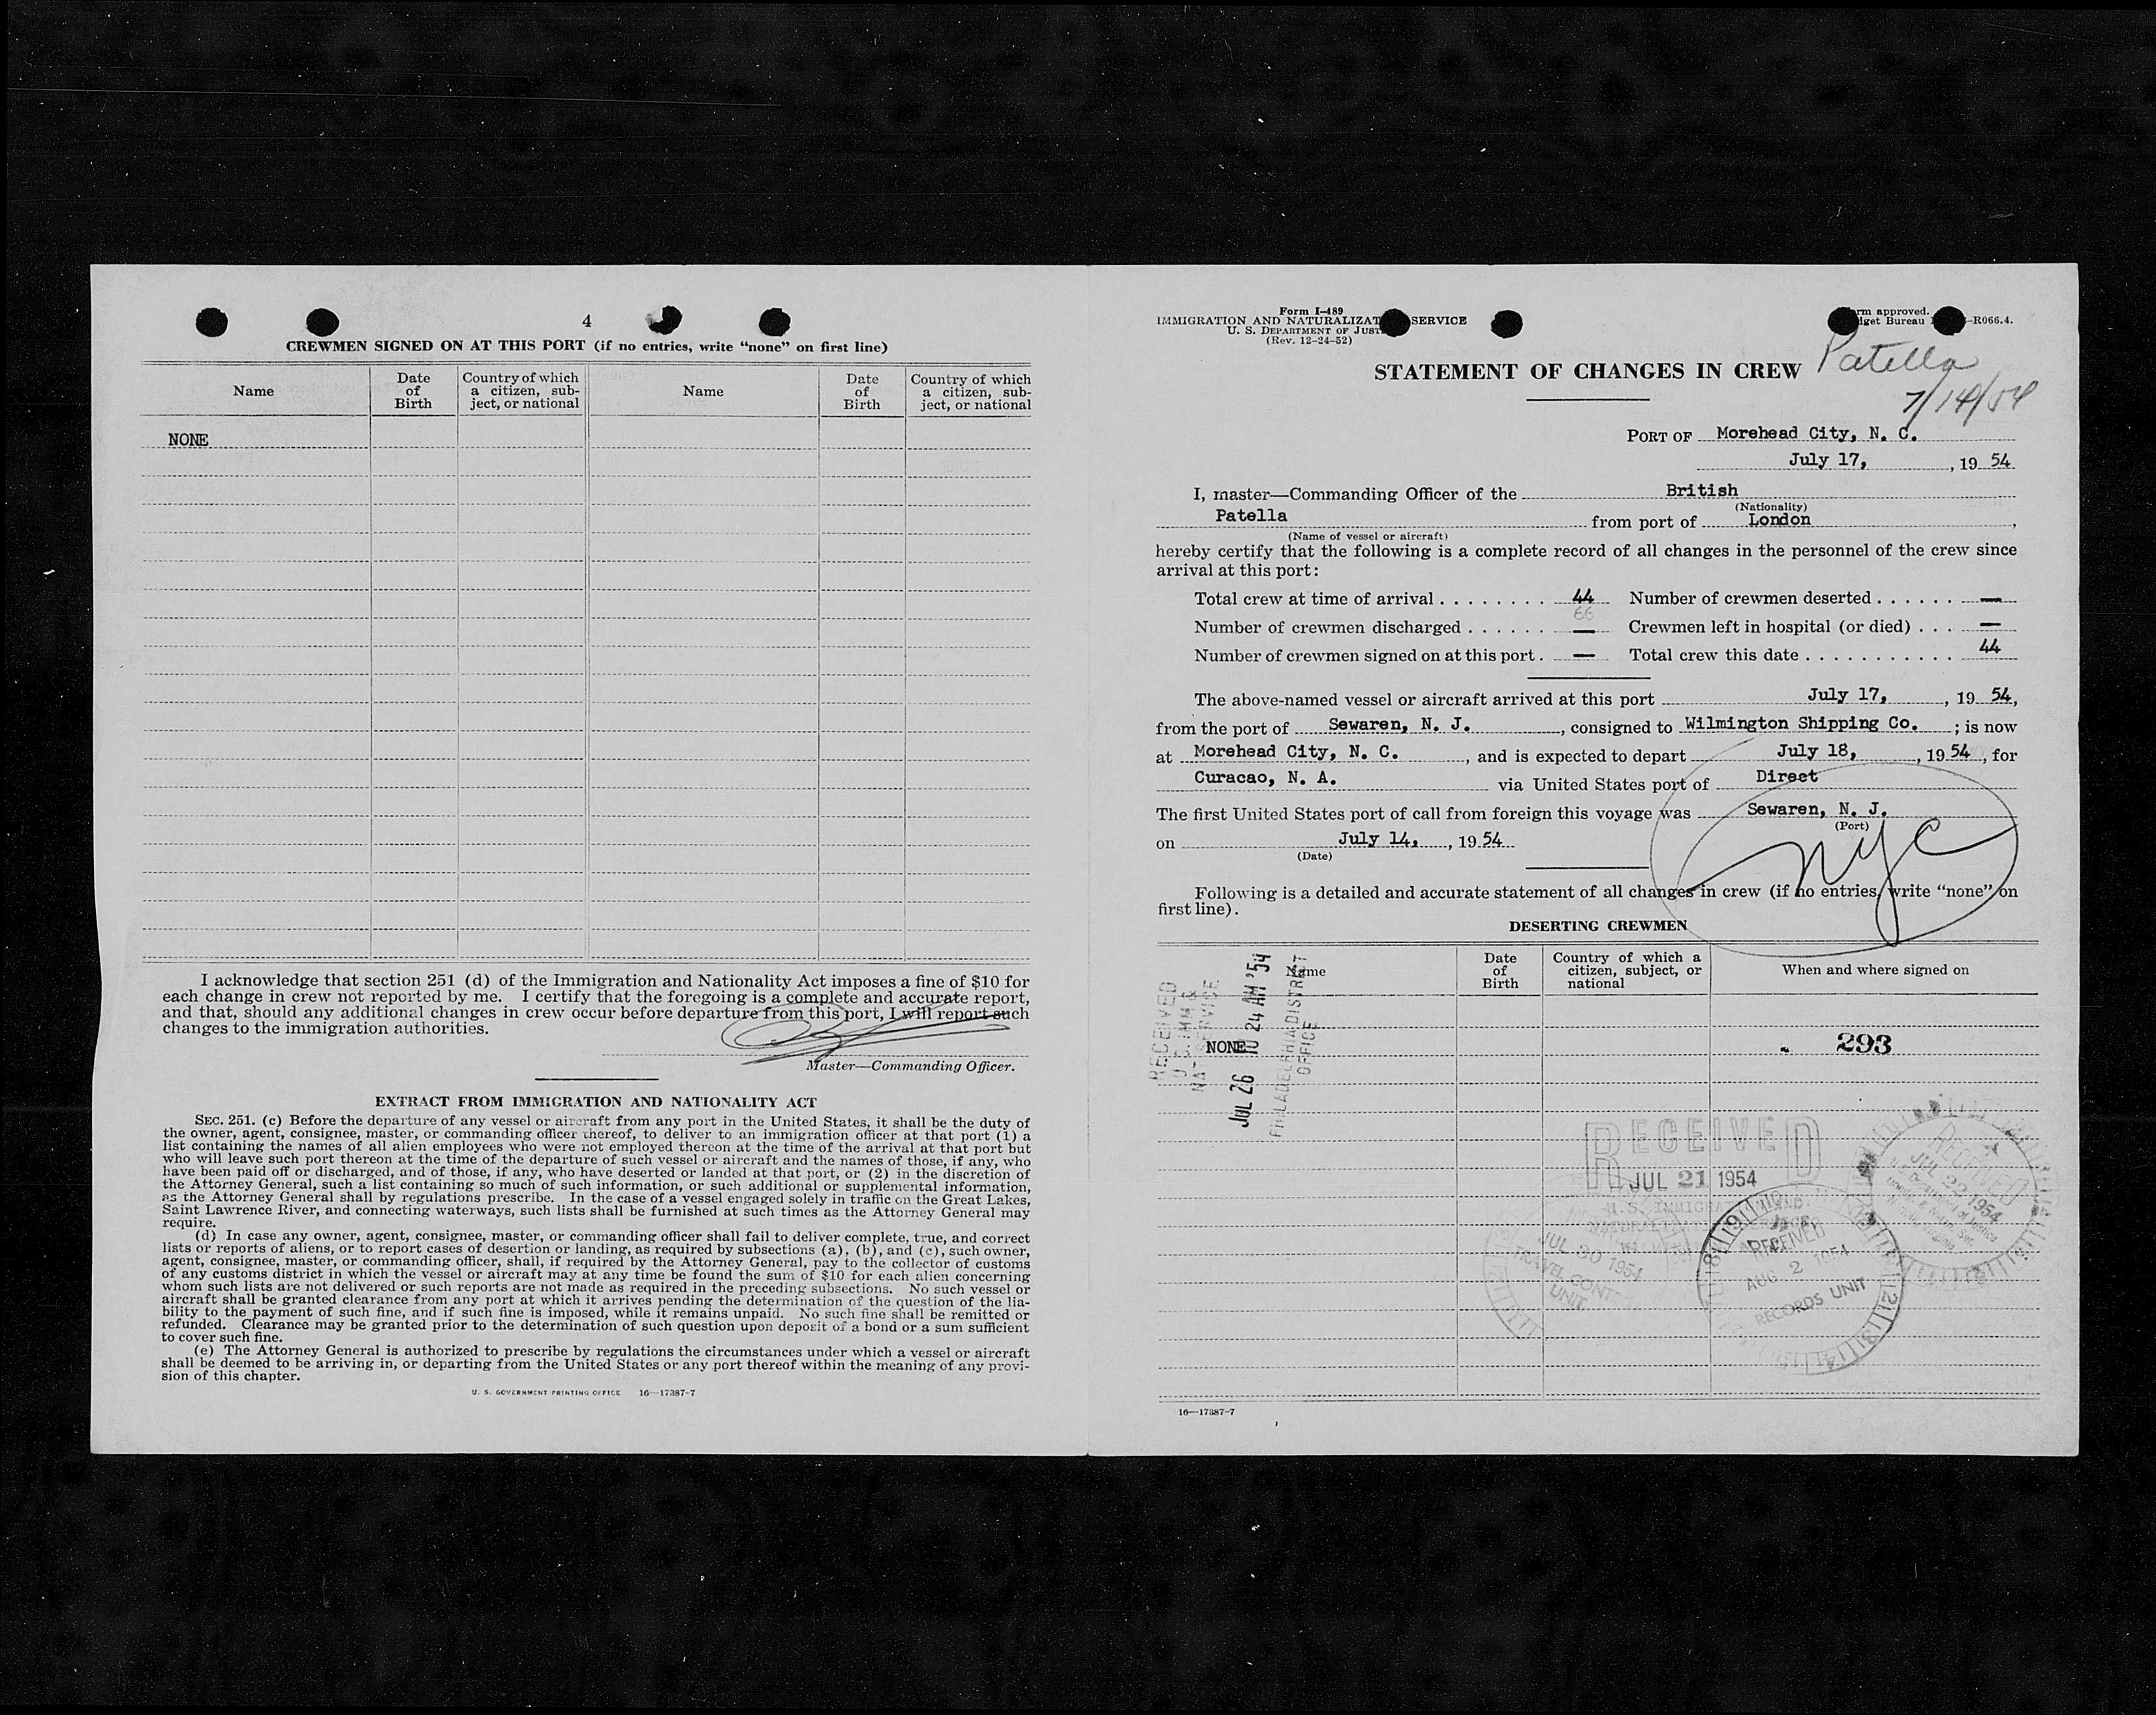 4
CREWMEN SIGNED ON AT THIS PORT (if no entries, write “none” on first line)
Name
Date of Birth
Country of which a citizen, subject, or national
Name
Date of Birth
Country of which a citizen, subject, or national
NONE
I acknowledge that section 251 (d) of the Immigration and Nationality Act imposes a fine of $10 for
each change in crew not reported by me. I certify that the foregoing is a complete and accurate report,
and that, should any additional changes in crew occur before departure from this port, I will report such
changes to the immigration authorities.
Master—Commanding Officer.
EXTRACT FROM IMMIGRATION AND NATIONALITY ACT
SEC. 251. (c) Before the departure of any vessel or aircraft from any port in the United States, it shall be the duty of
the owner, agent, consignee, master, or commanding officer thereof, to deliver to an immigration officer at that port (1) a
list containing the names of all alien employees who were not employed thereon at the time of the arrival at that port but
who will leave such port thereon at the time of the departure of such vessel or aircraft and the names of those, if any, who
have been paid off or discharged, and of those, if any, who have deserted or landed at that port, or (2) in the discretion of
the Attorney General, such a list containing so much of such information, or such additional or supplemental information,
as the Attorney General shall by regulations prescribe. In the case of a vessel engaged solely in traffic on the Great Lakes,
Saint Lawrence River, and connecting waterways, such lists shall be furnished at such times as the Attorney General may
require.
(d) In case any owner, agent, consignee, master, or commanding officer shall fail to deliver complete, true, and correct
lists or reports of aliens, or to report cases of desertion or landing, as required by subsections (a), (b), and (c), such owner,
agent, consignee, master, or commanding officer, shall, if required by the Attorney General, pay to the collector of customs
of any customs district in which the vessel or aircraft may at any time be found the sum of $10 for each alien concerning
whom such lists are not delivered or such reports are not made as required in the preceding subsections. No such vessel or
aircraft shall be granted clearance from any port at which it arrives pending the determination of the question of the lia-
bility to the payment of such fine, and if such fine is imposed, while it remains unpaid. No such fine shall be remitted or
refunded. Clearance may be granted prior to the determination of such question upon deposit of a bond or a sum sufficient
to cover such fine.
(e) The Attorney General is authorized to prescribe by regulations the circumstances under which a vessel or aircraft
shall be deemed to be arriving in, or departing from the United States or any port thereof within the meaning of any provi-
sion of this chapter.
U. S. GOVERNMENT PRINTING OFFICE 16—17387-7
Form I-489
IMMIGRATION AND NATURALIZAT SERVICE
U. S. DEPARTMENT OF JUST
(Rev. 12-24-52)
rm approved.
dget Bureau -R066.4.
STATEMENT OF CHANGES IN CREW
Patella
7/14/54
PORT OF Morehead City, N. C.
July 17, , 19 54
I, master—Commanding Officer of the British
(Nationality)
Patella from port of London ,
(Name of vessel or aircraft)
hereby certify that the following is a complete record of all changes in the personnel of the crew since
arrival at this port:
Total crew at time of arrival . . . . . . . . 44 Number of crewmen deserted . . . . . . —
66
Number of crewmen discharged . . . . . . — Crewmen left in hospital (or died) . . . —
Number of crewmen signed on at this port . — Total crew this date . . . . . . . . . . . . 44
The above-named vessel or aircraft arrived at this port July 17, , 19 54,
from the port of Sewaren, N. J. , consigned to Wilmington Shipping Co. ; is now
at Morehead City, N. C. , and is expected to depart July 18, , 19 54 , for
Curacao, N. A. via United States port of Direct
The first United States port of call from foreign this voyage was Sewaren, N. J.
(Port)
on July 14, , 19 54
(Date)
nyc
Following is a detailed and accurate statement of all changes in crew (if no entries, write “none” on
first line).
DESERTING CREWMEN
Name
Date of Birth
Country of which a citizen, subject, or national
When and where signed on
NONE
293
RECEIVED
JUL 26 10 24 AM '54
PHILADELPHIA DISTRICT
OFFICE
RECEIVED
JUL 21 1954
RECEIVED
JUL 22 1954
JUL 30 1954
TRAVEL CONT
UNIT
RECEIVED
AUG 2 1954
RECORDS UNIT
16—17387-7